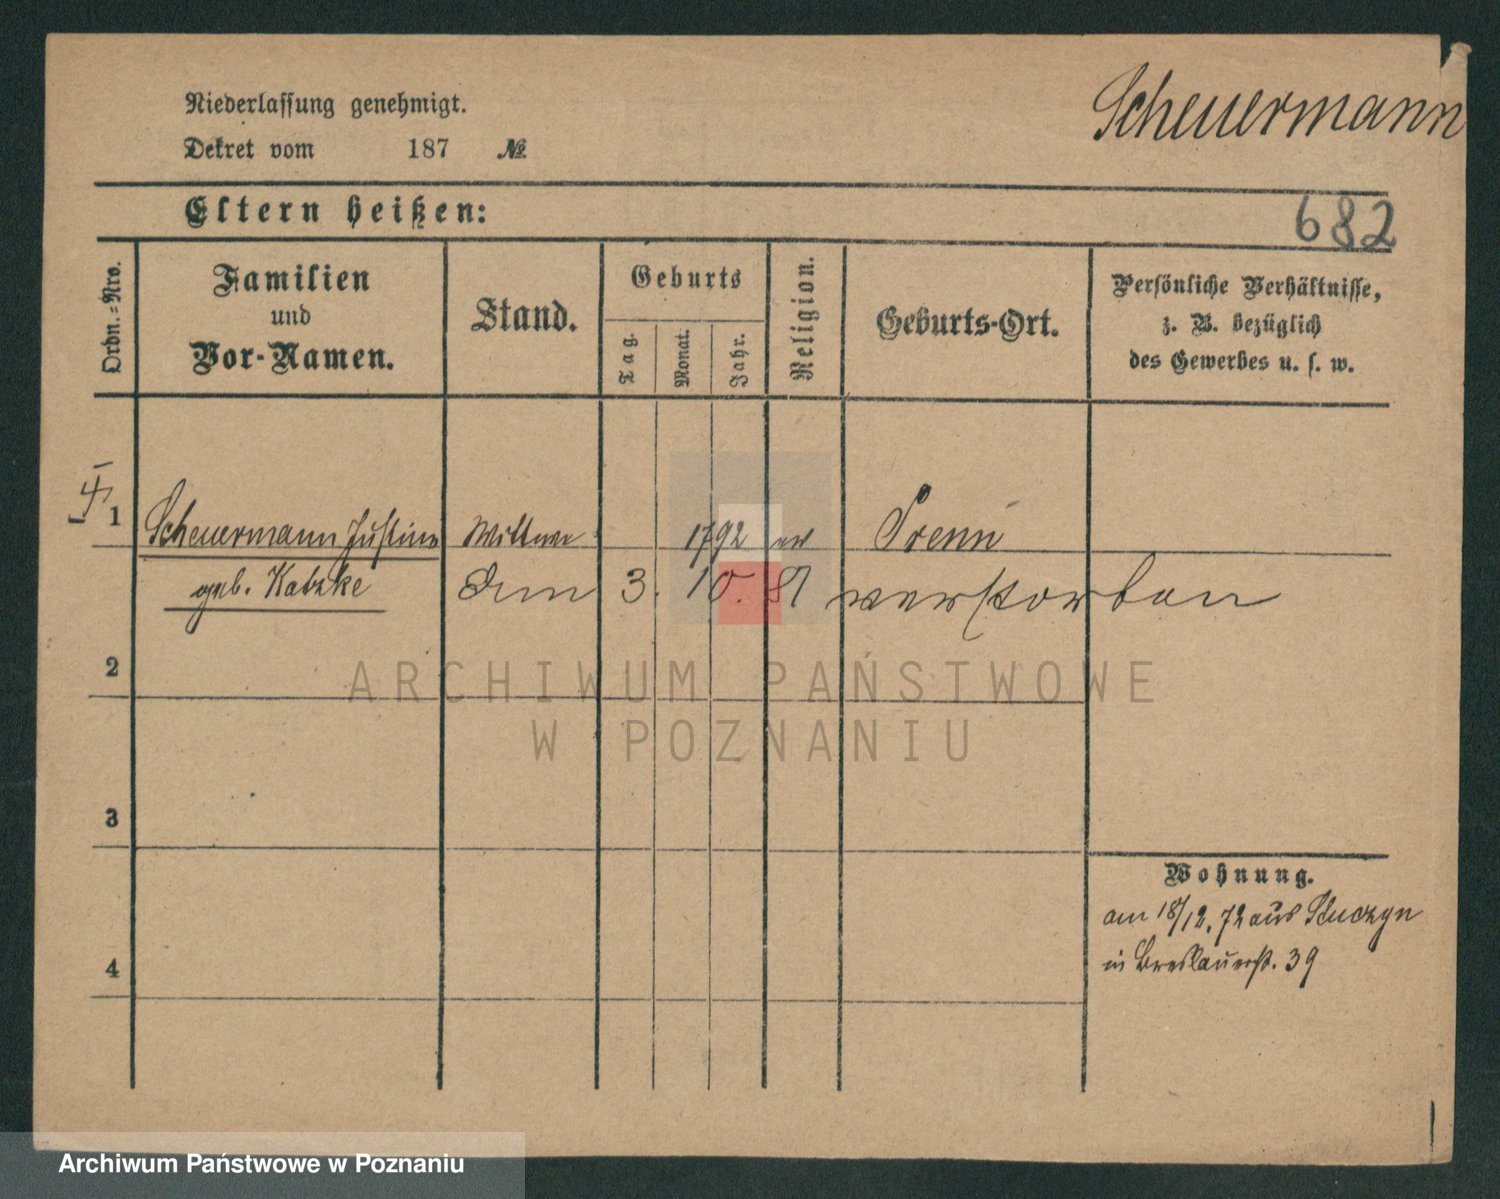 Niederlassung genehmigt.
Scheuermann
Dekret vom 187 №
Eltern heißen:
682
Ordn.-Nro.
Familien
und
Vor-Namen.
Stand.
Geburts
Tag.
Monat.
Jahr.
Religion.
Geburts-Ort.
Persönliche Verhältnisse,
z. B. bezüglich
des Gewerbes u. s. w.
1
Scheuermann Justine Wittwe 1792 ev
geb. Katzke Am 3. 10. 81 verstorben
2
ARCHIWUM PAŃSTWOWE
W POZNANIU
3
Wohnung.
am 18/12. 72 aus
in Breslauerst. 39
4
Archiwum Państwowe w Poznaniu